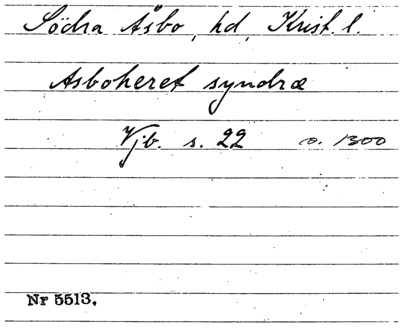 Södra Åsbo, hd, Krist. l.
Asboheret syndræ
Vjb. s. 22 o. 1300
Nr 5513.